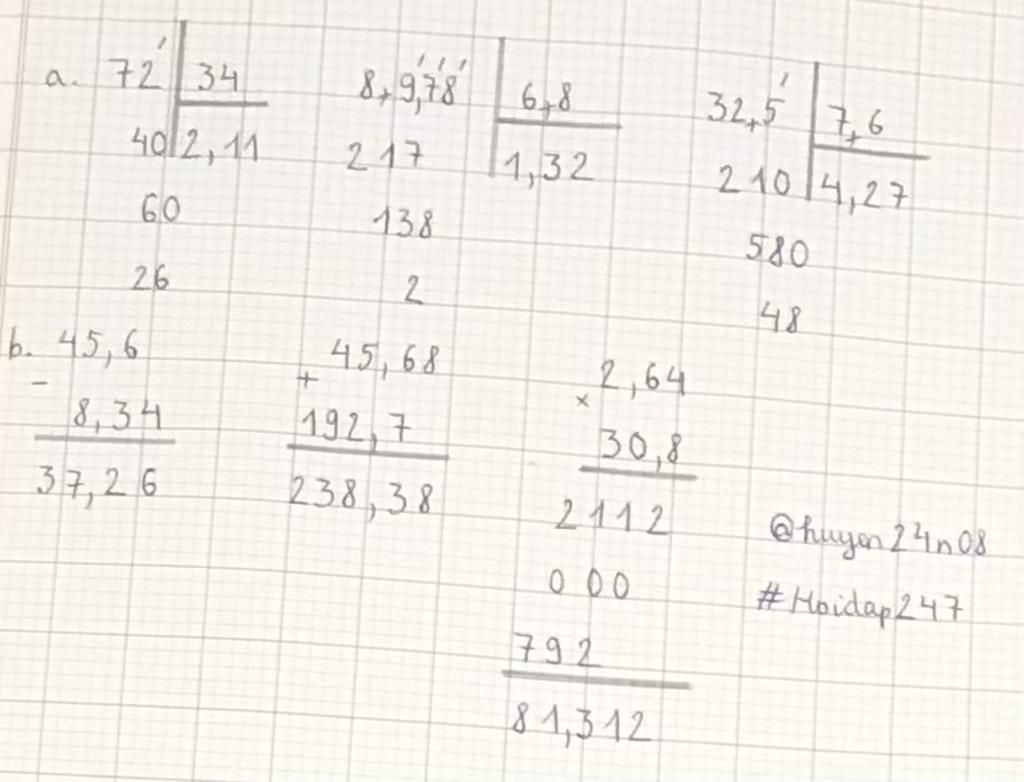 a. 72 34 8,9,78 6,8 32,5 7,6
40 2,11 217 1,32 210 4,27
60 138 580
26 2 48
b. 45,6 45,68 2,64
- + ×
8,34 192,7 30,8
37,26 238,38 2112
000
792
81,312
@huyen24n08
#Hoidap247